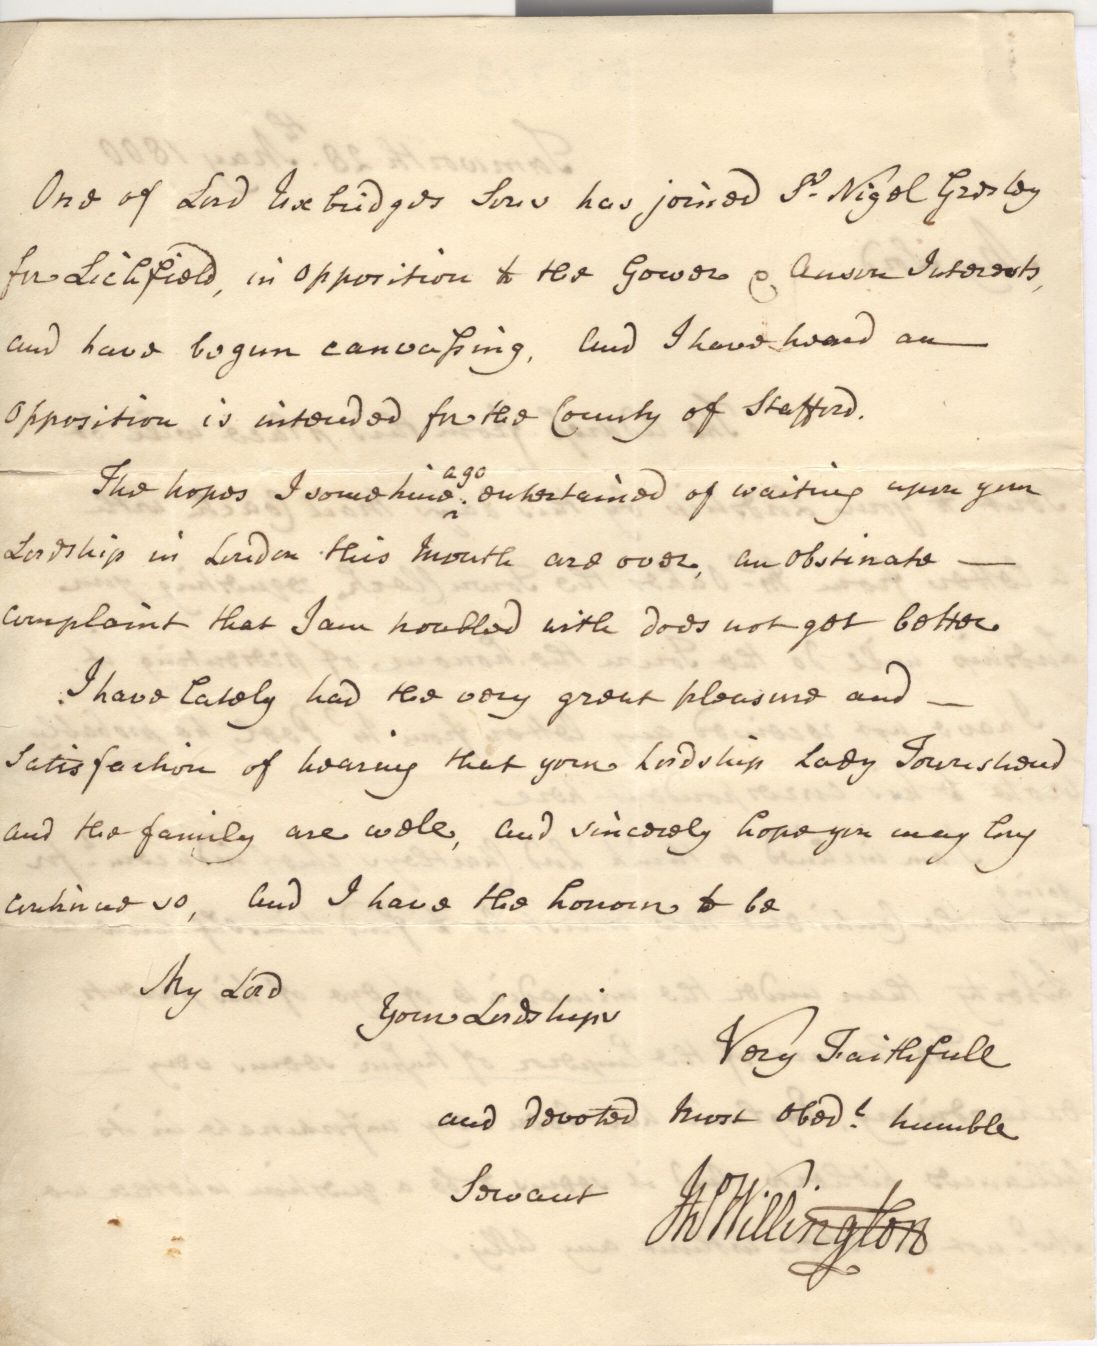 One of Lord Uxbridges Sons has joined Sr. Nigel Gresley
for Lichfield, in opposition to the Gower & Anson Interests,
and have begun canvaſsing, and I have heard an —
opposition is intended for the County of Stafford.
ago
The hopes I sometime ^ entertained of waiting upon your
Lordship in London this Month are over, an obstinate —
complaint that I am troubled with does not get better
I have lately had the very great pleasure and —
satisfaction of hearing that your Lordship Lady Townshend
and the family are well, and sincerely hope you may long
continue so, and I have the honour to be
My Lord
Your Lordships
Very Faithfull
and devoted most obedt. humble
Servant Thos Willington